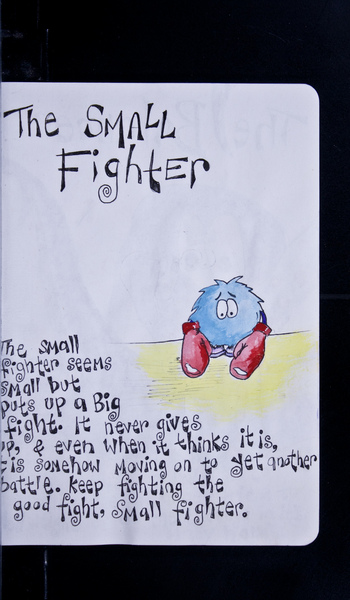 The SMALL
Fighter
The small
fighter seems
small but
puts up a Big
fight. It never gives
up, & even when it thinks it is,
it is somehow moving on to yet another
battle. Keep fighting the
good fight, small fighter.